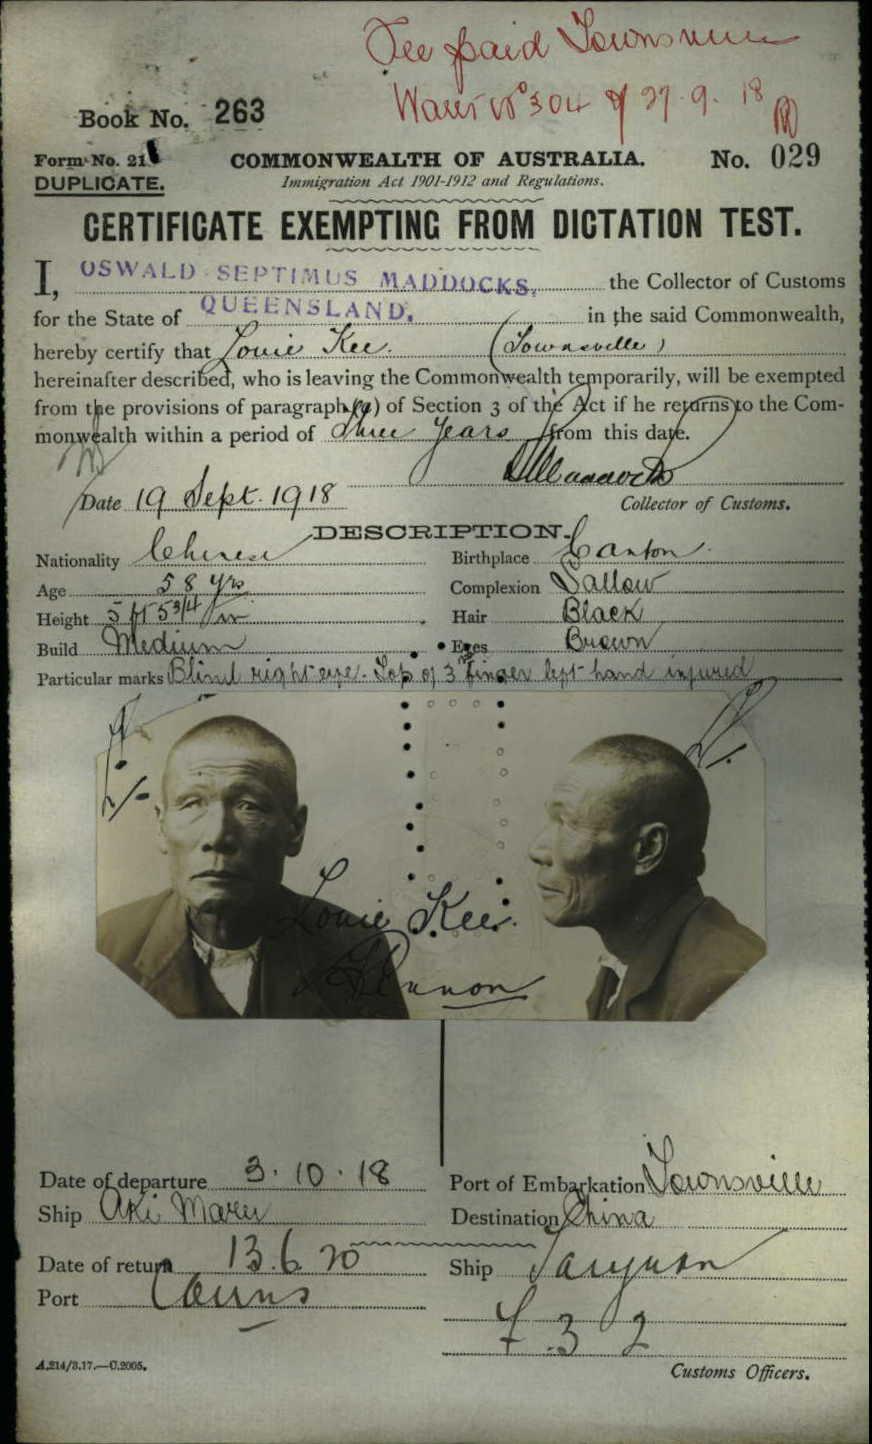 Fee paid Townsville
No 304 of 27.9.18
Book No. 263
Form No. 21
COMMONWEALTH OF AUSTRALIA.
No. 029
DUPLICATE.
Immigration Act 1901-1912 and Regulations.
CERTIFICATE EXEMPTING FROM DICTATION TEST.
I, OSWALD SEPTIMUS MADDOCKS, the Collector of Customs
for the State of QUEENSLAND. in the said Commonwealth,
hereby certify that Louie Kee. (Townsville)
hereinafter described, who is leaving the Commonwealth temporarily, will be exempted
from the provisions of paragraph (a) of Section 3 of the Act if he returns to the Com-
monwealth within a period of three years from this date.
Date 19 Sept. 1918
Collector of Customs.
DESCRIPTION.
Nationality Chinese
Birthplace Canton.
Age 58 yrs
Complexion Sallow
Height 5 ft 5 3/4 in
Hair Black
Build Medium
Eyes Brown
Particular marks Blind right eye. Top of 3rd finger left hand injured
Louie Kee.
Date of departure 3.10.18
Port of Embarkation Townsville
Ship Aki Maru
Destination China
Date of return 13.6.20
Ship Taiyuan
Port Cairns
A.214/3.17.—C.2005.
Customs Officers.